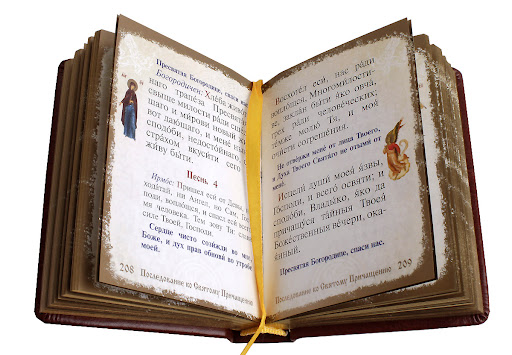 Пресвятая Богородице, спаси нас.
Богородичен: Хлеба живо-
наго трапеза Пресвятая
свыше милости ради сшед-
шаго и мирови новый жи-
вот дающаго, и мене ны-
сподоби, недостойнаго, со
страхом вкусити сего, и
живу быти.
Песнь 4
Ирмос: Пришел еси от Девы, не
ходатай, ни Ангел, но Сам, Гос-
поди, воплощься, и спасл еси всего
мя человека. Тем зову Ти: слава
силе Твоей, Господи.
Сердце чисто созижди во мне,
Боже, и дух прав обнови во утробе
моей.
208 Последование ко Святому Причащению
Восхоте́л еси́, нас ра́ди
вопло́щся, Многоми́лости-
ве, закла́н бы́ти я́ко овча́,
грех ра́ди челове́ческих;
те́мже молю́ Тя, и моя́
очи́сти согреше́ния.
Не отве́ржи мене́ от лица́ Твоего́,
и Ду́ха Твоего́ Свята́го не отыми́ от
мене́.
Исцели́ души́ моея́ я́звы,
Го́споди, и всего́ освяти́; и
сподо́би, Влады́ко, я́ко да
причащу́ся та́йныя Твоея́
Боже́ственныя ве́чери, ока-
я́нный.
Пресвятая Богородице, спаси нас.
Последование ко Святому Причащению 209